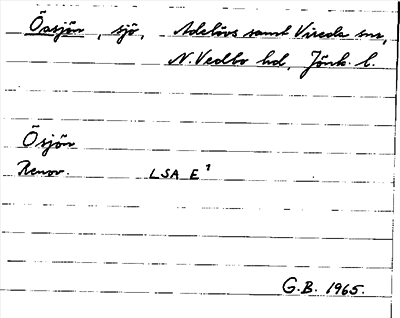 Össjön, sjö, Adelövs samt Vireda snr,
N. Vedbo hd, Jönk. l.
Ösjön
Renov. LSA E¹
G.B. 1965.